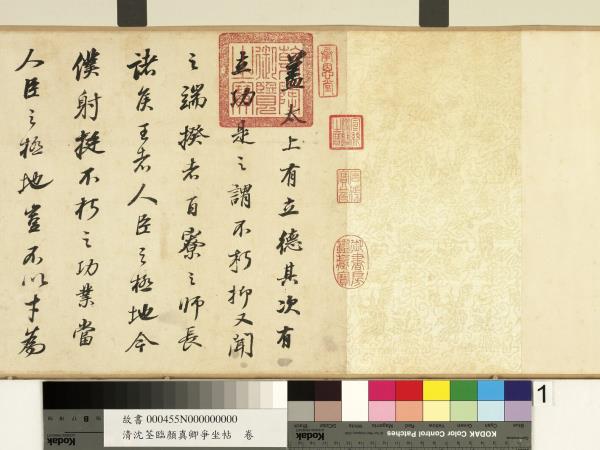 蓋太上有立德其次有
立功是之謂不朽抑又聞
之端揆者百寮之師長
諸侯王者人臣之極地今
僕射挺不朽之功業當
人臣之極地豈不以才為
乾隆御覽之寶
御書房鑑藏寶
故書 000455N000000000
清沈荃臨顏真卿爭坐帖 卷
Kodak
KODAK Color Control Patches
Blue
Cyan
Green
Yellow
Red
Magenta
White
3/Color
Black
B
1